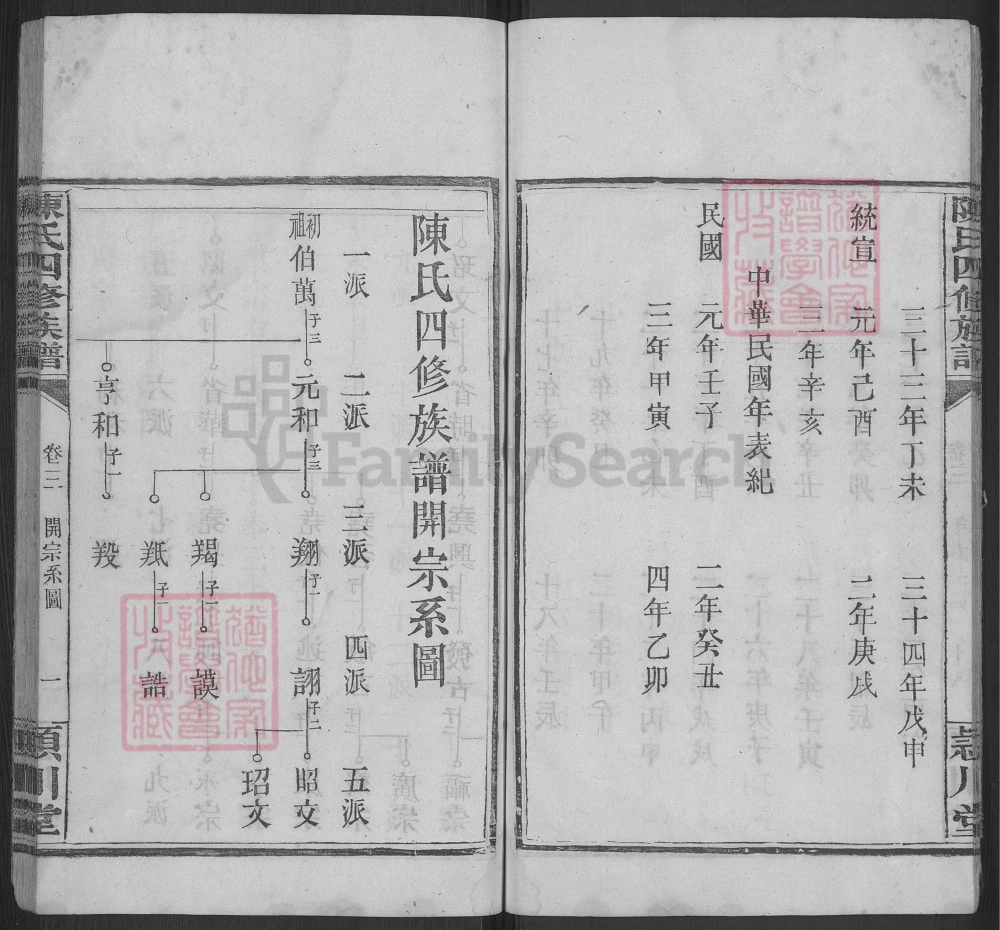 陳氏四修族譜
潁川堂
三十三年丁未
三十四年戊申
統宣
元年己酉
二年庚戌
三年辛亥
中華民國年表紀
民國
元年壬子
二年癸丑
三年甲寅
四年乙卯
陳氏四修族譜開宗系圖
一派
二派
三派
四派
五派
初祖
伯萬
子三
元和
子三
翔
子一
詡
子二
昭文
玿文
羯
子一
謨
羝
子一
誥
亨和
子一
羖
陳氏四修族譜
卷三
開宗系圖
一
潁川堂
FamilySearch